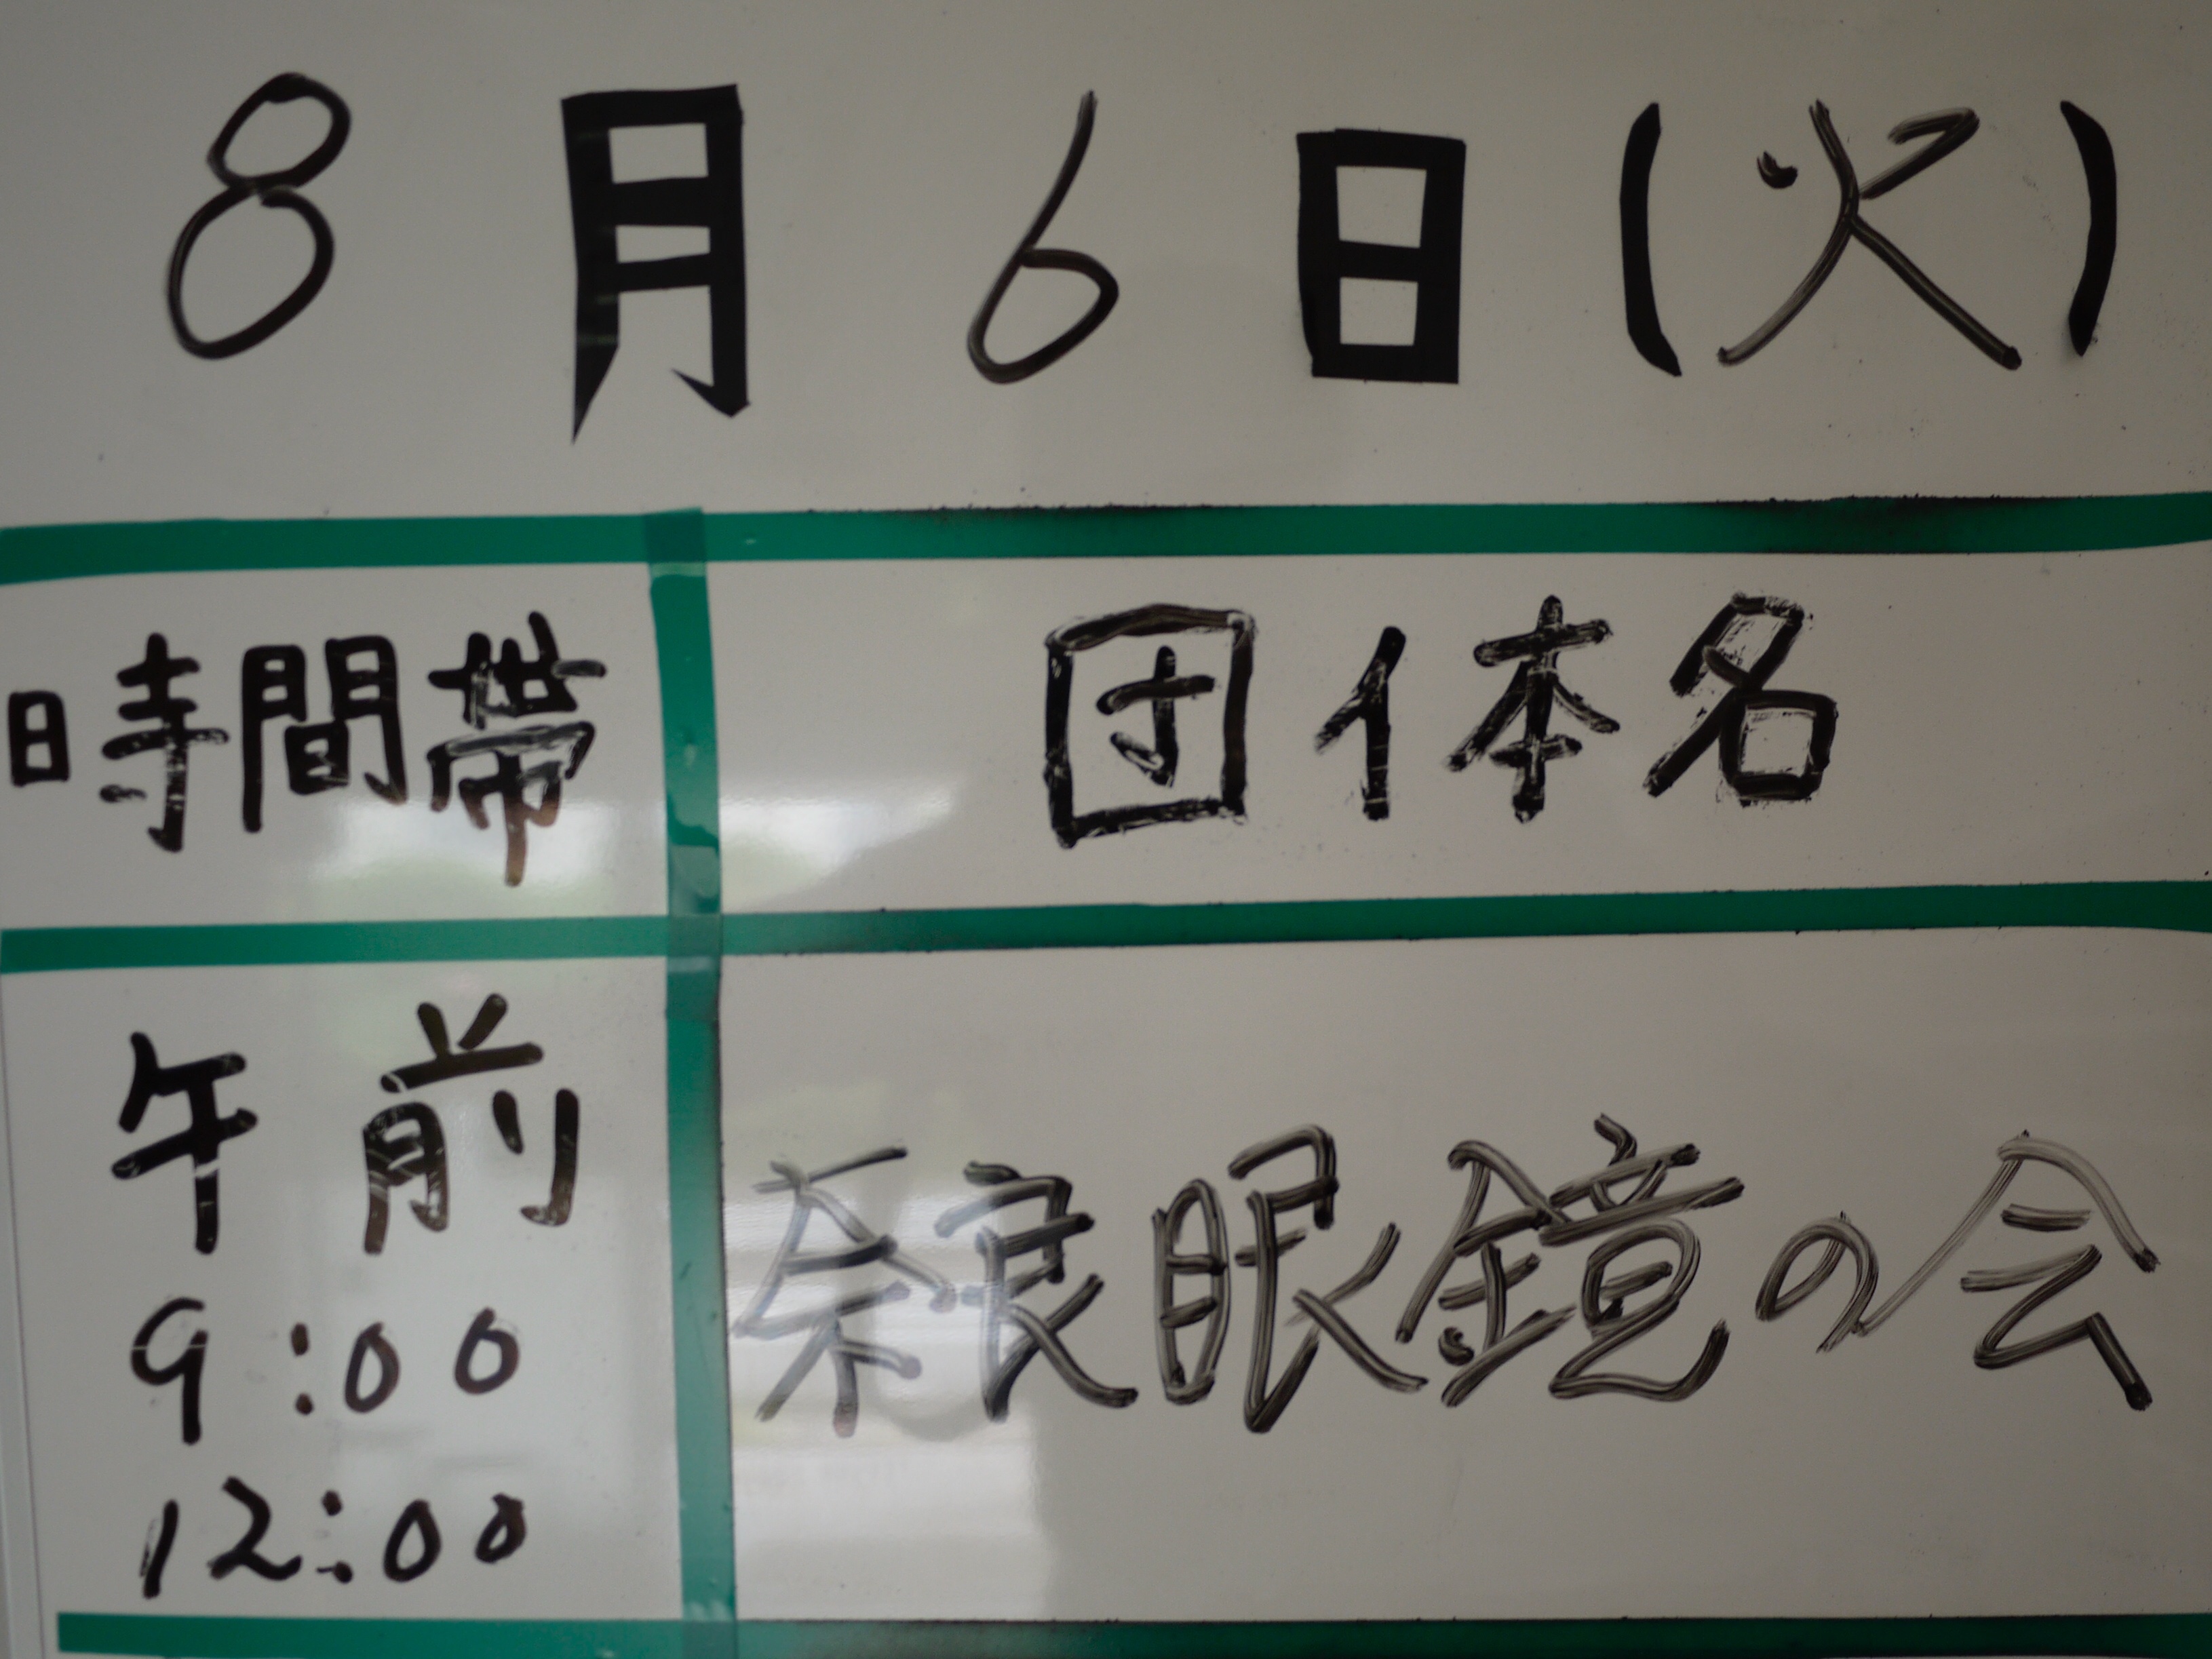 8月6日(火)
時間帯
団体名
午前
9:00
12:00
奈良眼鏡の会